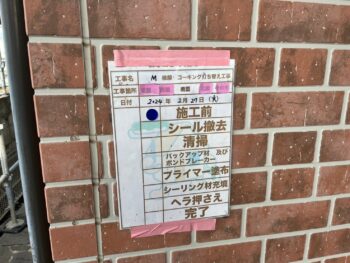 工事名 M 建物 コーキング打ち替え工事
工事箇所
日付 2024 年 2月 27日 (火)
施工前
シール撤去
清掃
バックアップ材 及び
ボンドブレーカー
プライマー塗布
シーリング材充填
ヘラ押さえ
完了